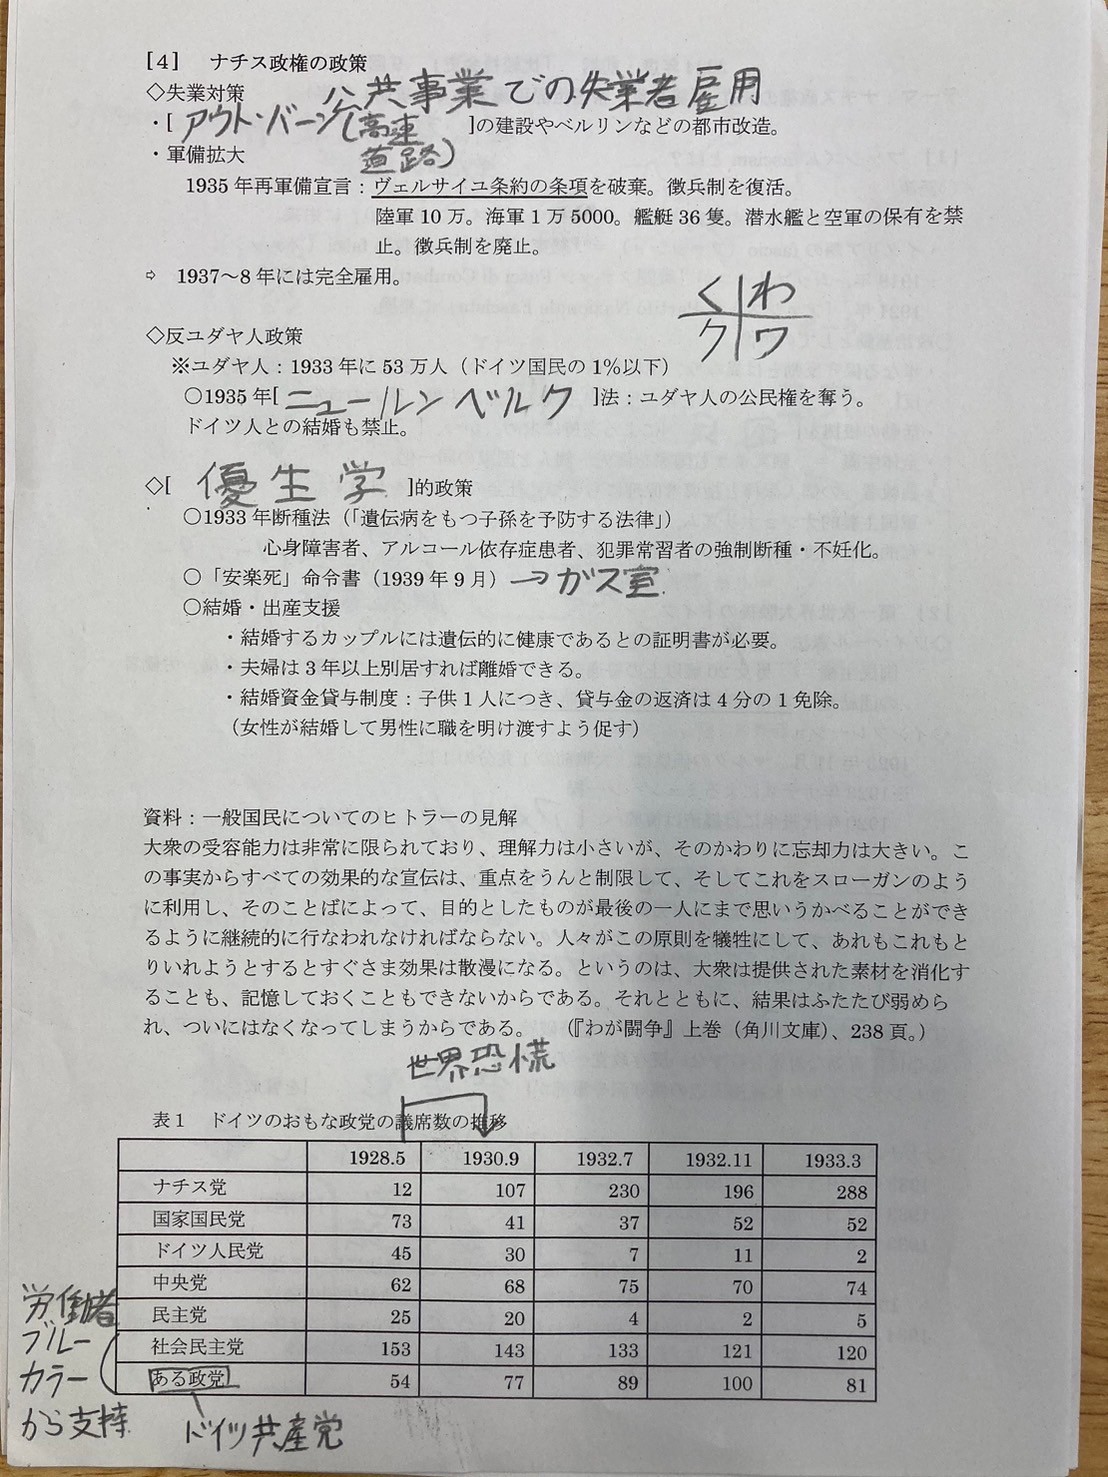 [4] ナチス政権の政策
◇失業対策 公共事業での失業者雇用
・[ アウト・バーン(高速道路) ]の建設やベルリンなどの都市改造。
・軍備拡大
1935年再軍備宣言：ヴェルサイユ条約の条項を破棄。徴兵制を復活。
陸軍10万。海軍1万5000。艦艇36隻。潜水艦と空軍の保有を禁
止。徴兵制を廃止。
⇨ 1937～8年には完全雇用。
く わ
ク ワ
◇反ユダヤ人政策
※ユダヤ人：1933年に53万人（ドイツ国民の1％以下）
○1935年[ ニュールンベルク ]法：ユダヤ人の公民権を奪う。
ドイツ人との結婚も禁止。
◇[ 優生学 ]的政策
○1933年断種法（「遺伝病をもつ子孫を予防する法律」）
心身障害者、アルコール依存症患者、犯罪常習者の強制断種・不妊化。
○「安楽死」命令書（1939年9月）→ガス室
○結婚・出産支援
・結婚するカップルには遺伝的に健康であるとの証明書が必要。
・夫婦は3年以上別居すれば離婚できる。
・結婚資金貸与制度：子供1人につき、貸与金の返済は4分の1免除。
（女性が結婚して男性に職を明け渡すよう促す）
資料：一般国民についてのヒトラーの見解
大衆の受容能力は非常に限られており、理解力は小さいが、そのかわりに忘却力は大きい。こ
の事実からすべての効果的な宣伝は、重点をうんと制限して、そしてこれをスローガンのよう
に利用し、そのことばによって、目的としたものが最後の一人にまで思いうかべることができ
るように継続的に行なわれなければならない。人々がこの原則を犠牲にして、あれもこれもと
りいれようとするとすぐさま効果は散漫になる。というのは、大衆は提供された素材を消化す
ることも、記憶しておくこともできないからである。それとともに、結果はふたたび弱めら
れ、ついにはなくなってしまうからである。 （『わが闘争』上巻（角川文庫）、238頁。）
世界恐慌
表1 ドイツのおもな政党の議席数の推移
1928.5 1930.9 1932.7 1932.11 1933.3
ナチス党 12 107 230 196 288
国家国民党 73 41 37 52 52
ドイツ人民党 45 30 7 11 2
中央党 62 68 75 70 74
民主党 25 20 4 2 5
社会民主党 153 143 133 121 120
ある政党 54 77 89 100 81
労働者
ブルー
カラー
から支持
ドイツ共産党